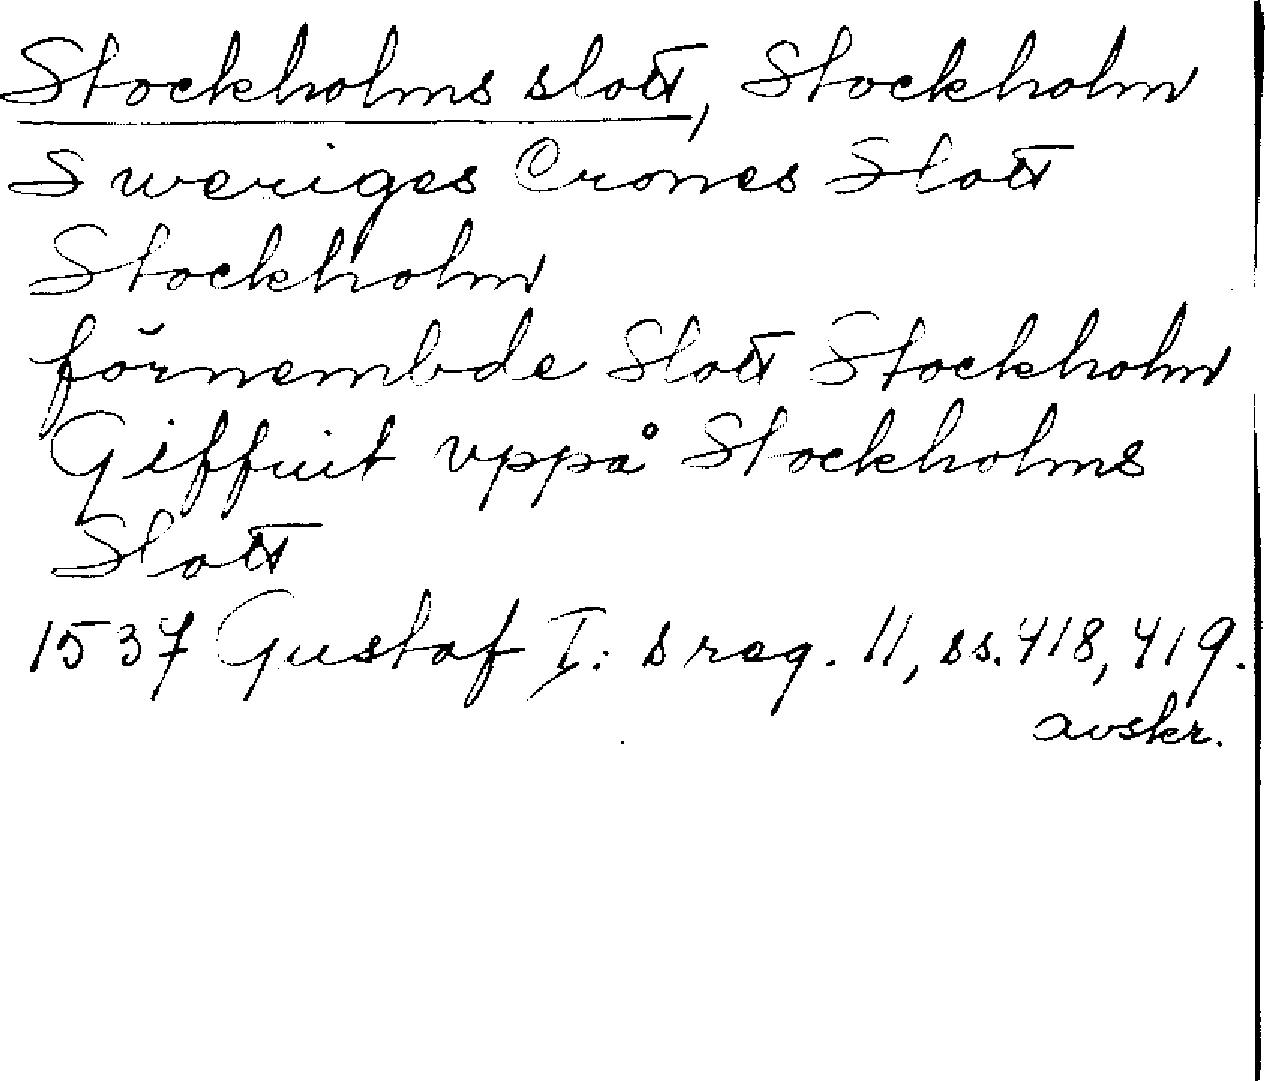 Stockholms slott, Stockholm
Sweriges Crones Slott
Stockholm
förnembde Slott Stockholm
Giffuit vppå Stockholms
Slott
1537 Gustaf I:s reg. 11, ss. 418, 419.
avskr.